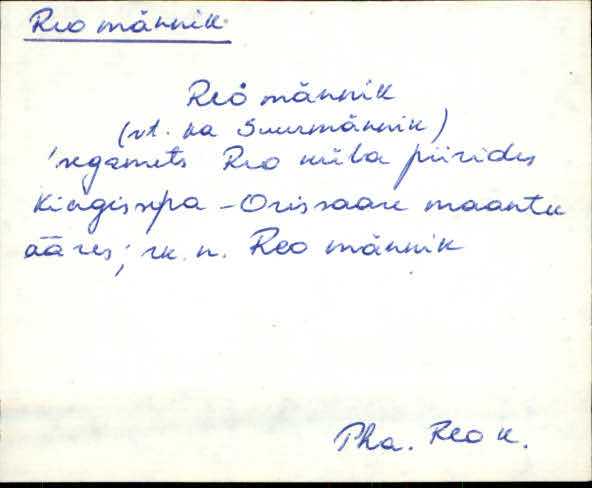 Reo männik
Reo männik
(vt. ka Suurmännik)
'segamets Reo küla piirides
Kingissepa - Orissaare maantee
ääres; rk. n. Reo männik
Pha. Reo k.